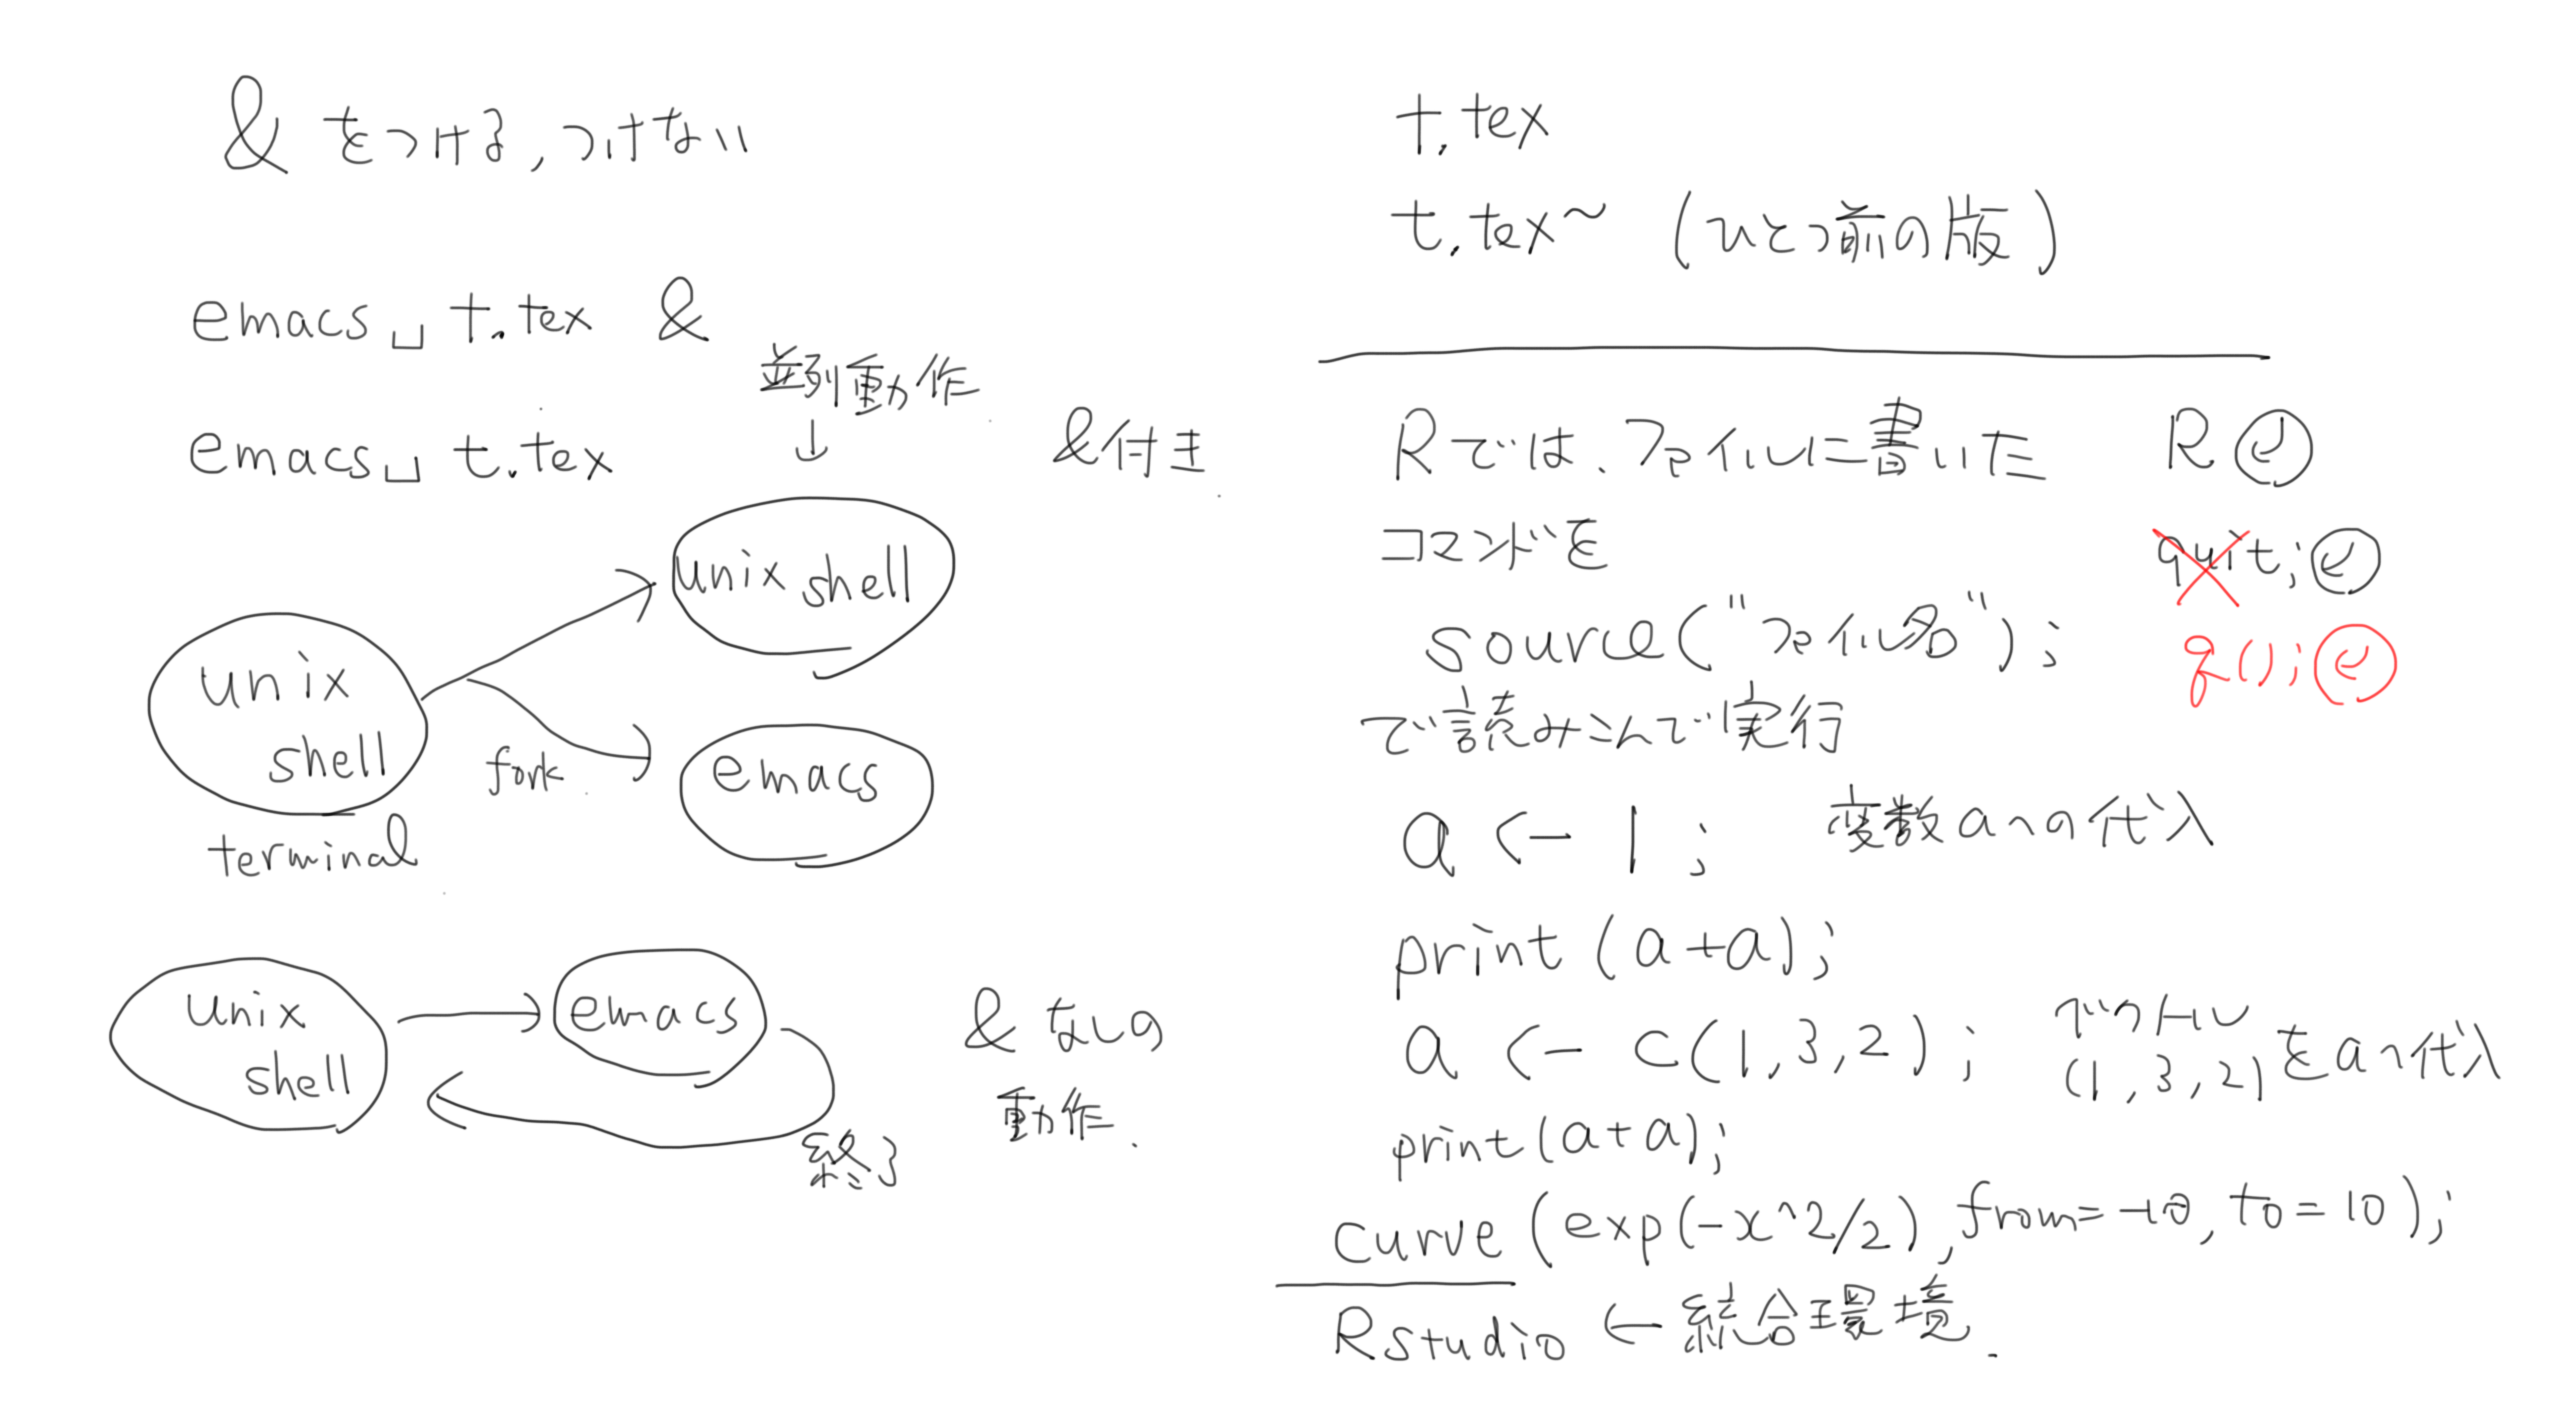 & をつける,つけない
emacs␣t.tex &
emacs␣t.tex
並列動作
↓
&付き
unix shell
unix
shell
fork
emacs
terminal
unix
shell
emacs
& なしの
動作.
終了
t.tex
t.tex~ (ひとつ前の版)
Rでは、ファイルに書いた
コマンドを
source("ファイル名");
で読みこんで実行
R
quit;
q();
a <- 1; 変数aへの代入
print(a+a);
a <- c(1,3,2); ベクトル
(1,3,2)をaへ代入
print(a+a);
curve(exp(-x^2/2),from=-10,to=10);
Rstudio ← 統合環境.